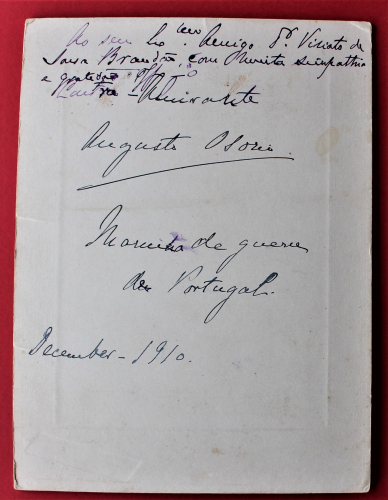 Ao seu Ex.mo Amigo Dr. Viriato de
Sousa Brandão com muita simpathia
e gratidão off.
Contra-Almirante
Augusto Osorio.
Marinha de guerra
de Portugal.
December - 1910.